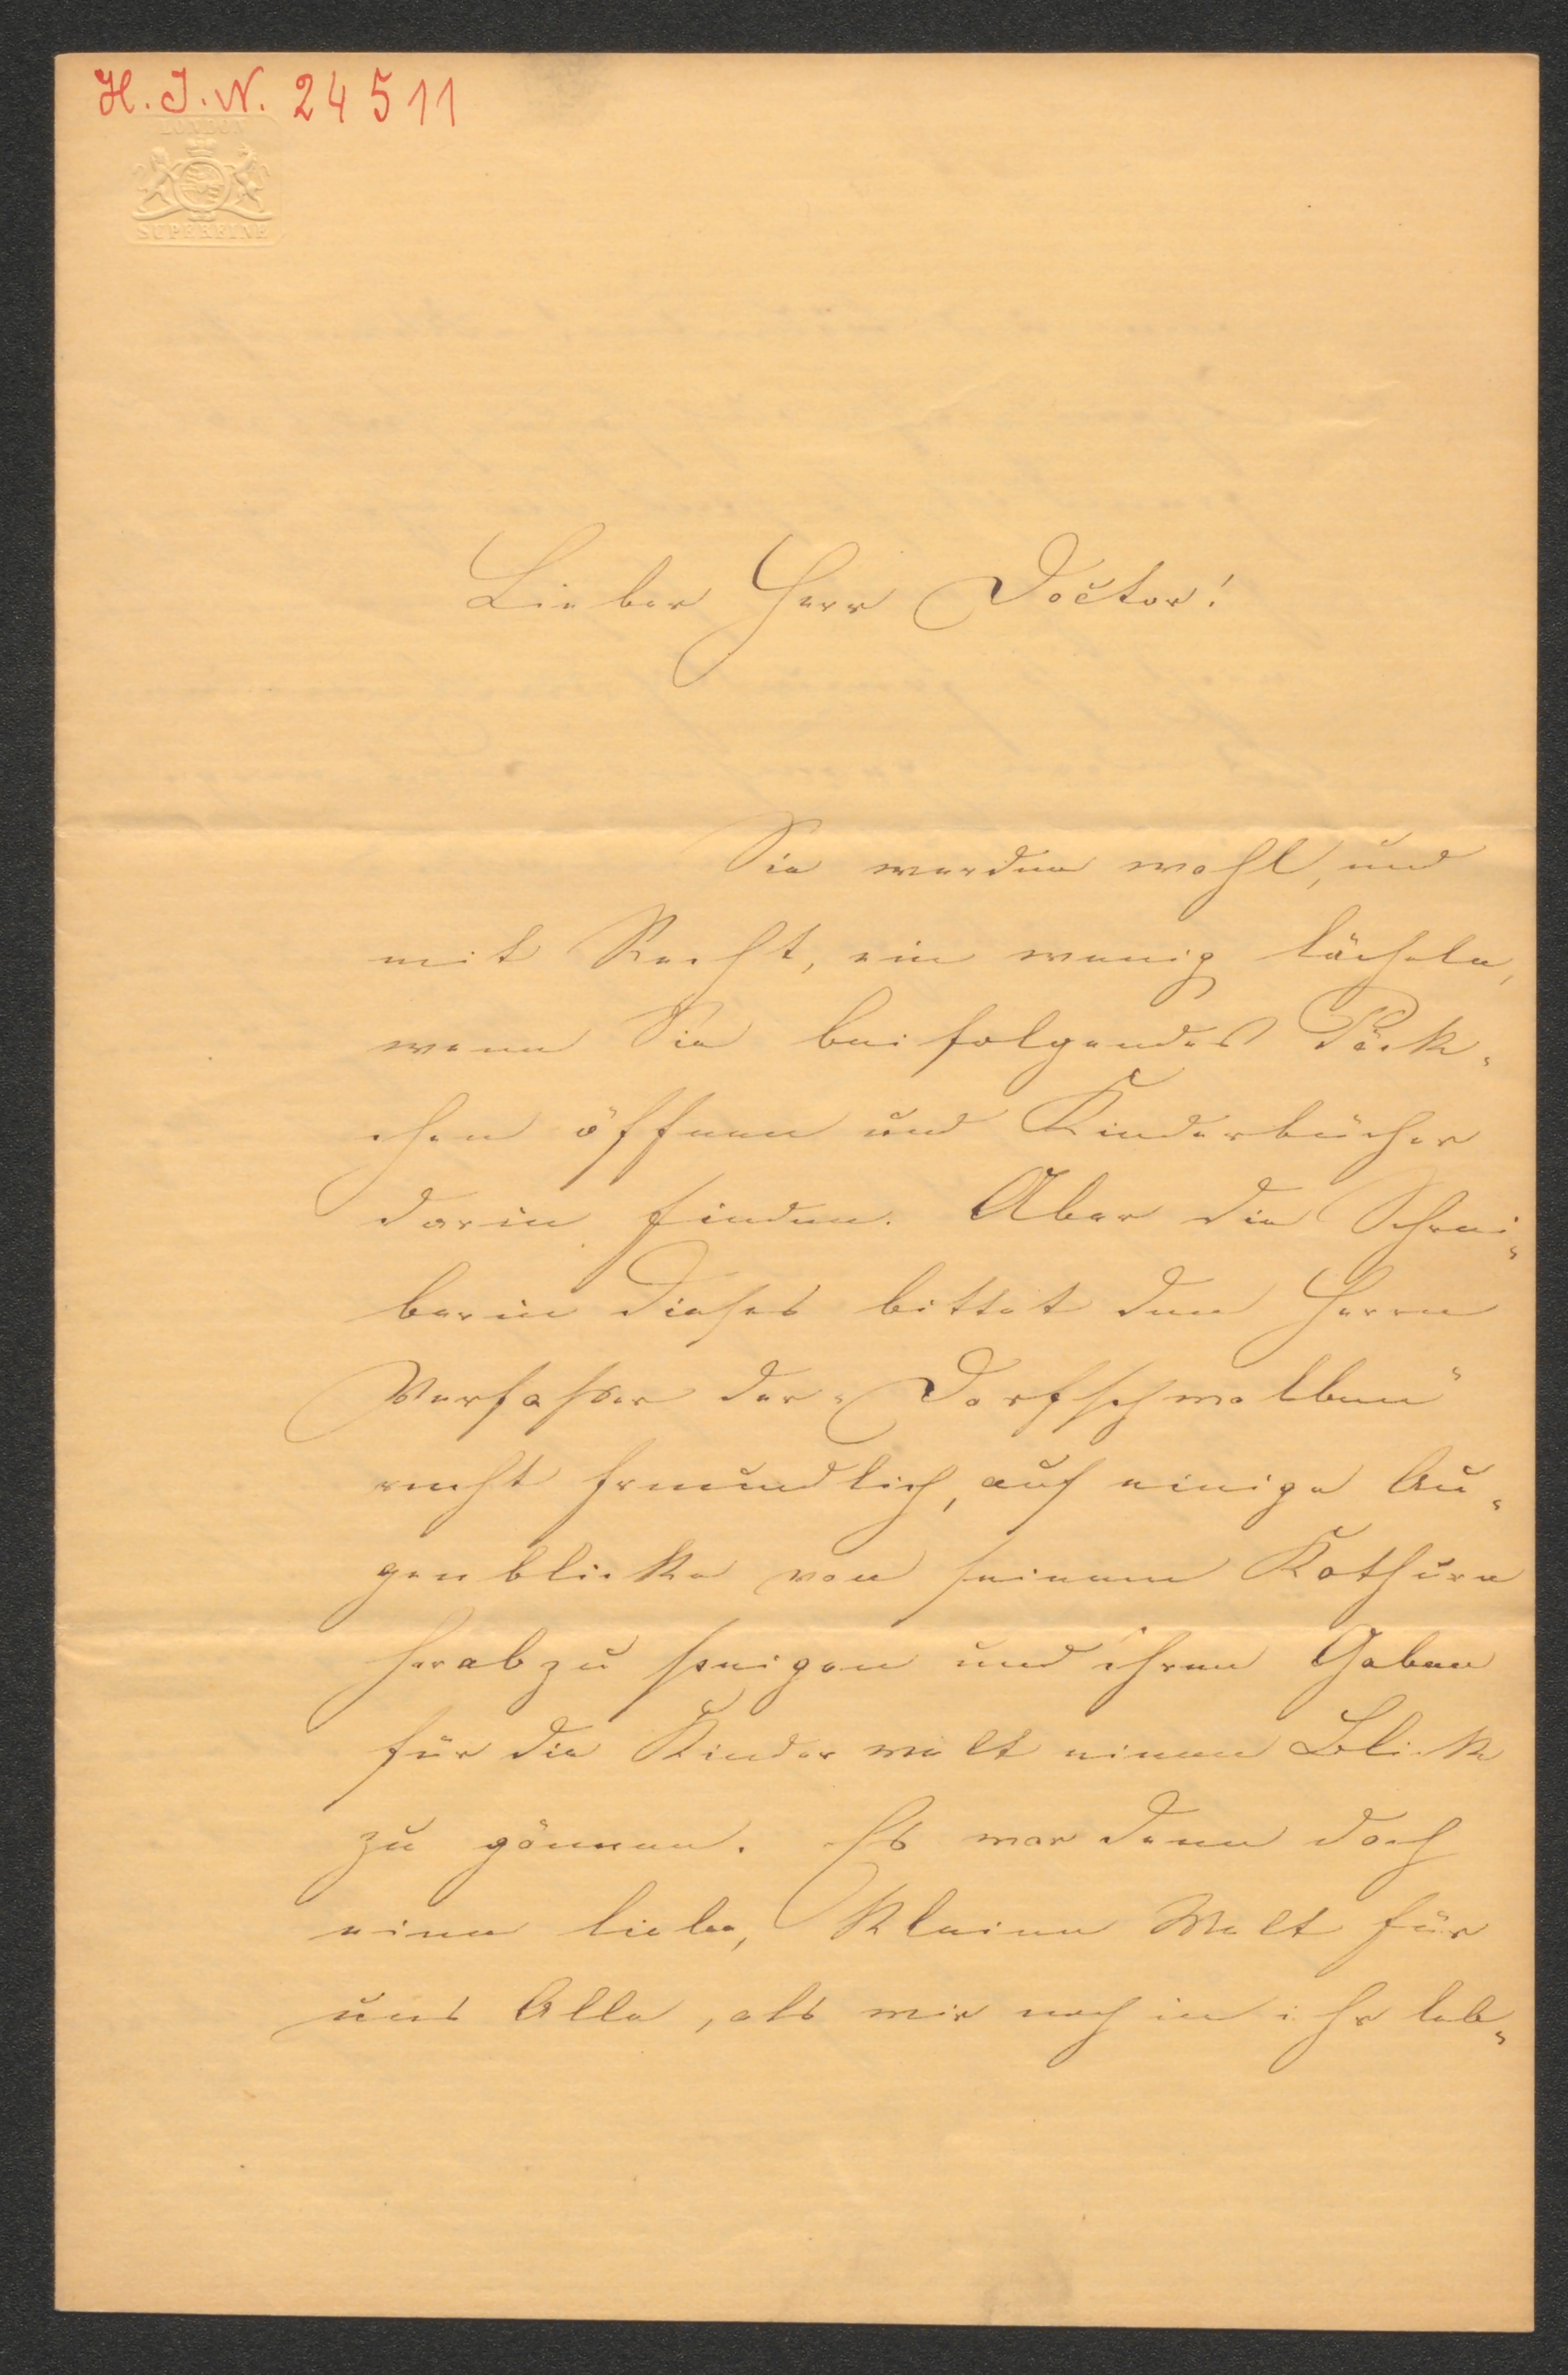 H. I. N. 24511
LONDON
SUPERFINE
Lieber Herr Doctor!
Sie werden wohl, und
mit Recht, ein wenig lächeln,
wenn Sie beifolgendes Päck-
chen öffnen und Kinderbücher
darin finden. Aber die Schrei-
berin dieses bittet den Herrn
Verfasser der „Dorfschwalben“
recht freundlich, auf einige Au-
genblicke von seinem Kothurn
herabzusteigen und ihren Gaben
für die Kinderwelt einen Blick
zu gönnen. Es war denn doch
eine liebe, kleine Welt für
uns Alle, als wir noch in ihr leb-